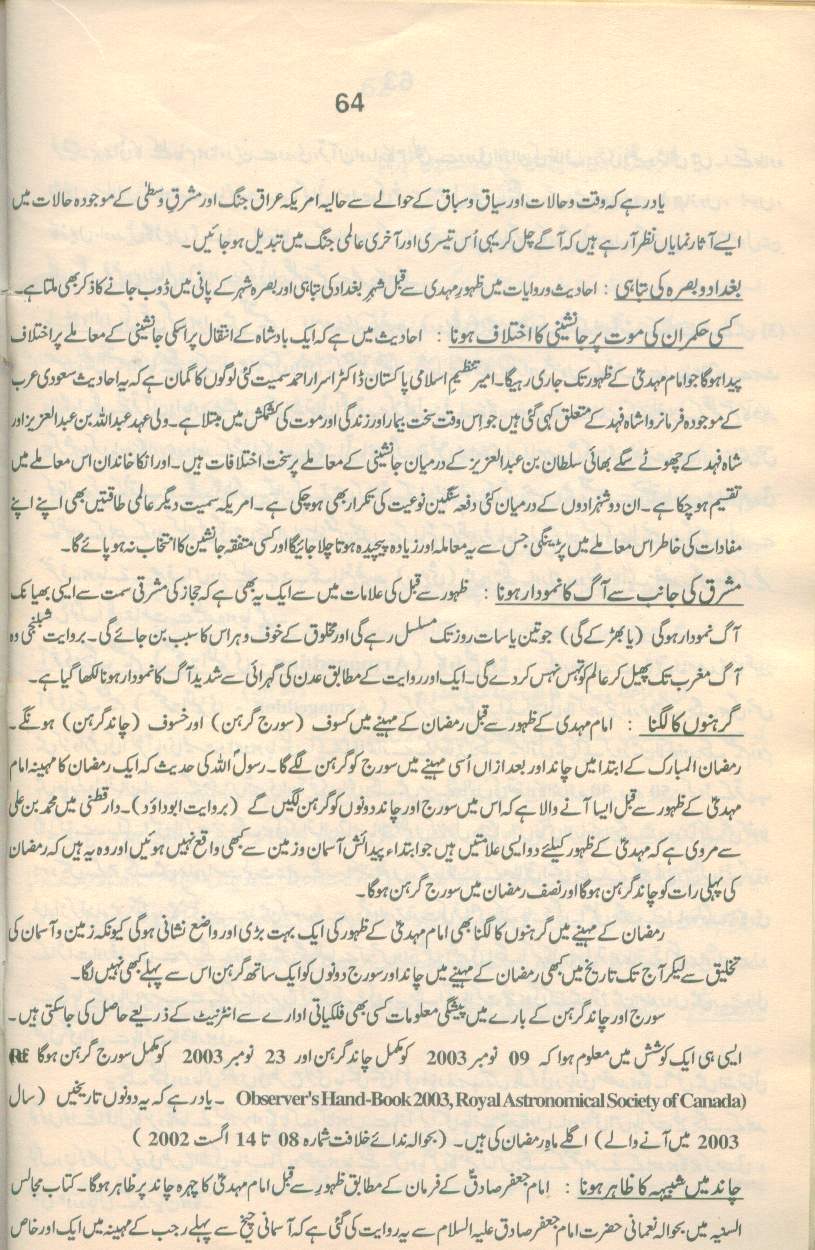 64
یاد رہے کہ وقت و حالات اور سیاق و سباق کے حوالے سے حالیہ امریکہ عراق جنگ اور مشرقِ وسطیٰ کے موجودہ حالات میں
ایسے آثار نمایاں نظر آ رہے ہیں کہ آگے چل کر یہی اُس تیسری اور آخری عالمی جنگ میں تبدیل ہو جائیں۔
بغداد و بصرہ کی تباہی : احادیث و روایات میں ظہورِ مہدی سے قبل شہرِ بغداد کی تباہی اور بصرہ شہر کے پانی میں ڈوب جانے کا ذکر بھی ملتا ہے۔
کسی حکمران کی موت پر جانشینی کا اختلاف ہونا : احادیث میں ہے کہ ایک بادشاہ کے انتقال پر اسکی جانشینی کے معاملے پر اختلاف
پیدا ہوگا جو امام مہدیؑ کے ظہور تک جاری رہیگا۔ امیر تنظیمِ اسلامی پاکستان ڈاکٹر اسرار احمد سمیت کئی لوگوں کا گمان ہے کہ یہ احادیث سعودی عرب
کے موجودہ فرمانروا شاہ فہد کے متعلق کہی گئی ہیں جو اس وقت سخت بیمار اور زندگی اور موت کی کشمکش میں مبتلا ہے۔ ولی عہد عبداللہ بن عبدالعزیز اور
شاہ فہد کے چھوٹے سگے بھائی سلطان بن عبدالعزیز کے درمیان جانشینی کے معاملے پر سخت اختلافات ہیں۔ اور انکا خاندان اس معاملے میں
تقسیم ہو چکا ہے۔ ان دو شہزادوں کے درمیان کئی دفعہ سنگین نوعیت کی تکرار بھی ہو چکی ہے۔ امریکہ سمیت دیگر عالمی طاقتیں بھی اپنے اپنے
مفادات کی خاطر اس معاملے میں پڑینگی جس سے یہ معاملہ اور زیادہ پیچیدہ ہوتا چلا جائیگا اور کسی متفقہ جانشین کا انتخاب نہ ہو پائے گا۔
مشرق کی جانب سے آگ کا نمودار ہونا : ظہور سے قبل کی علامات میں سے ایک یہ بھی ہے کہ حجاز کی مشرقی سمت سے ایسی بھیانک
آگ نمودار ہوگی (یا بھڑکے گی) جو تین یا سات روز تک مسلسل رہے گی اور مخلوق کے خوف و ہراس کا سبب بن جائے گی۔ بروایت شبلنجی وہ
آگ مغرب تک پھیل کر عالم کو تہس نہس کر دے گی۔ ایک اور روایت کے مطابق عدن کی گہرائی سے شدید آگ کا نمودار ہونا لکھا گیا ہے۔
گرہنوں کا لگنا : امام مہدی کے ظہور سے قبل رمضان کے مہینے میں کسوف (سورج گرہن) اور خسوف (چاند گرہن) ہونگے۔
رمضان المبارک کے ابتدا میں چاند اور بعد ازاں اُسی مہینے میں سورج کو گرہن لگے گا۔ رسولؐ اللہ کی حدیث کہ ایک رمضان کا مہینہ امام
مہدیؑ کے ظہور سے قبل ایسا آنے والا ہے کہ اس میں سورج اور چاند دونوں کو گرہن لگیں گے (بروایت ابوداؤد)۔ دار قطنی میں محمد بن علی
سے مروی ہے کہ مہدیؑ کے ظہور کیلئے دو ایسی علامتیں ہیں جو ابتداء پیدائش آسمان و زمین سے کبھی واقع نہیں ہوئیں اور وہ یہ ہیں کہ رمضان
کی پہلی رات کو چاند گرہن ہوگا اور نصف رمضان میں سورج گرہن ہوگا۔
رمضان کے مہینے میں گرہنوں کا لگنا بھی امام مہدیؑ کے ظہور کی ایک بہت بڑی اور واضع نشانی ہوگی کیونکہ زمین و آسمان کی
تخلیق سے لیکر آج تک تاریخ میں کبھی رمضان کے مہینے میں چاند اور سورج دونوں کو ایک ساتھ گرہن اس سے پہلے کبھی نہیں لگا۔
سورج اور چاند گرہن کے بارے میں پیشگی معلومات کسی بھی فلکیاتی ادارے سے انٹرنیٹ کے ذریعے حاصل کی جاسکتی ہیں۔
ایسی ہی ایک کوشش میں معلوم ہوا کہ 09 نومبر 2003 کو مکمل چاند گرہن اور 23 نومبر 2003 کو مکمل سورج گرہن ہوگا Ref:
Observer's Hand-Book 2003, Royal Astronomical Society of Canada) ۔ یاد رہے کہ یہ دونوں تاریخیں (سال
2003 میں آنے والے) اگلے ماہِ رمضان کی ہیں۔ (بحوالہ ندائے خلافت شمارہ 08 تا 14 اگست 2002 )
چاند میں شبیہہ کا ظاہر ہونا : امام جعفر صادقؑ کے فرمان کے مطابق ظہور سے قبل امام مہدیؑ کا چہرہ چاند پر ظاہر ہوگا۔ کتاب مجالس
السنیہ میں بحوالہ نعمانی حضرت امام جعفر صادق علیہ السلام سے یہ روایت کی گئی ہے کہ آسمانی چیخ سے پہلے رجب کے مہینہ میں ایک اور خاص